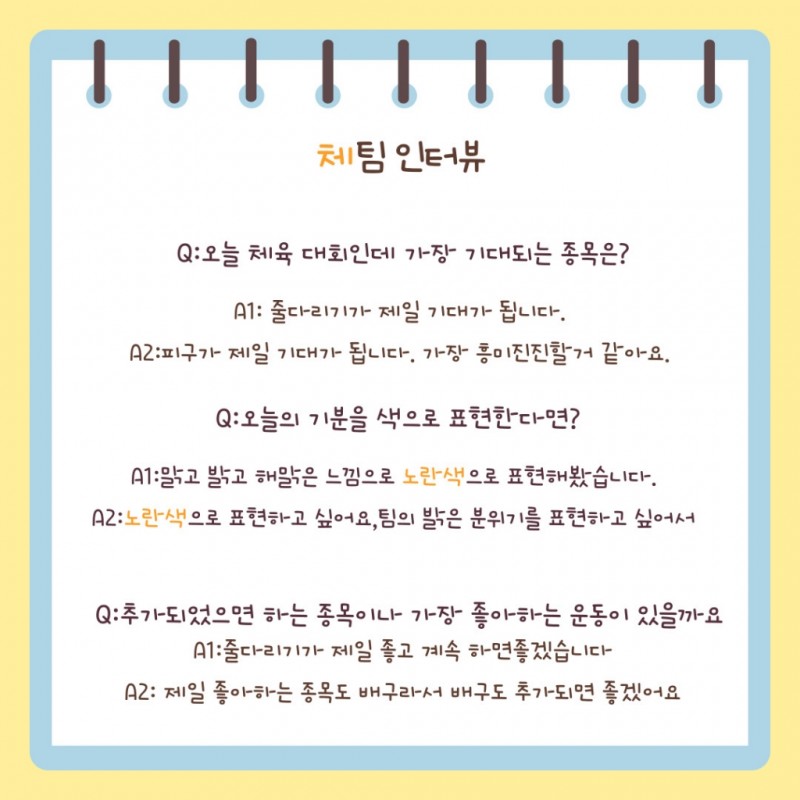 체팀 인터뷰
Q:오늘 체육 대회인데 가장 기대되는 종목은?
A1: 줄다리기가 제일 기대가 됩니다.
A2:피구가 제일 기대가 됩니다. 가장 흥미진진할거 같아요.
Q:오늘의 기분을 색으로 표현한다면?
A1:맑고 밝고 해맑은 느낌으로 노란색으로 표현해봤습니다.
A2:노란색으로 표현하고 싶어요,팀의 밝은 분위기를 표현하고 싶어서
Q:추가되었으면 하는 종목이나 가장 좋아하는 운동이 있을까요
A1:줄다리기가 제일 좋고 계속 하면좋겠습니다
A2: 제일 좋아하는 종목도 배구라서 배구도 추가되면 좋겠어요